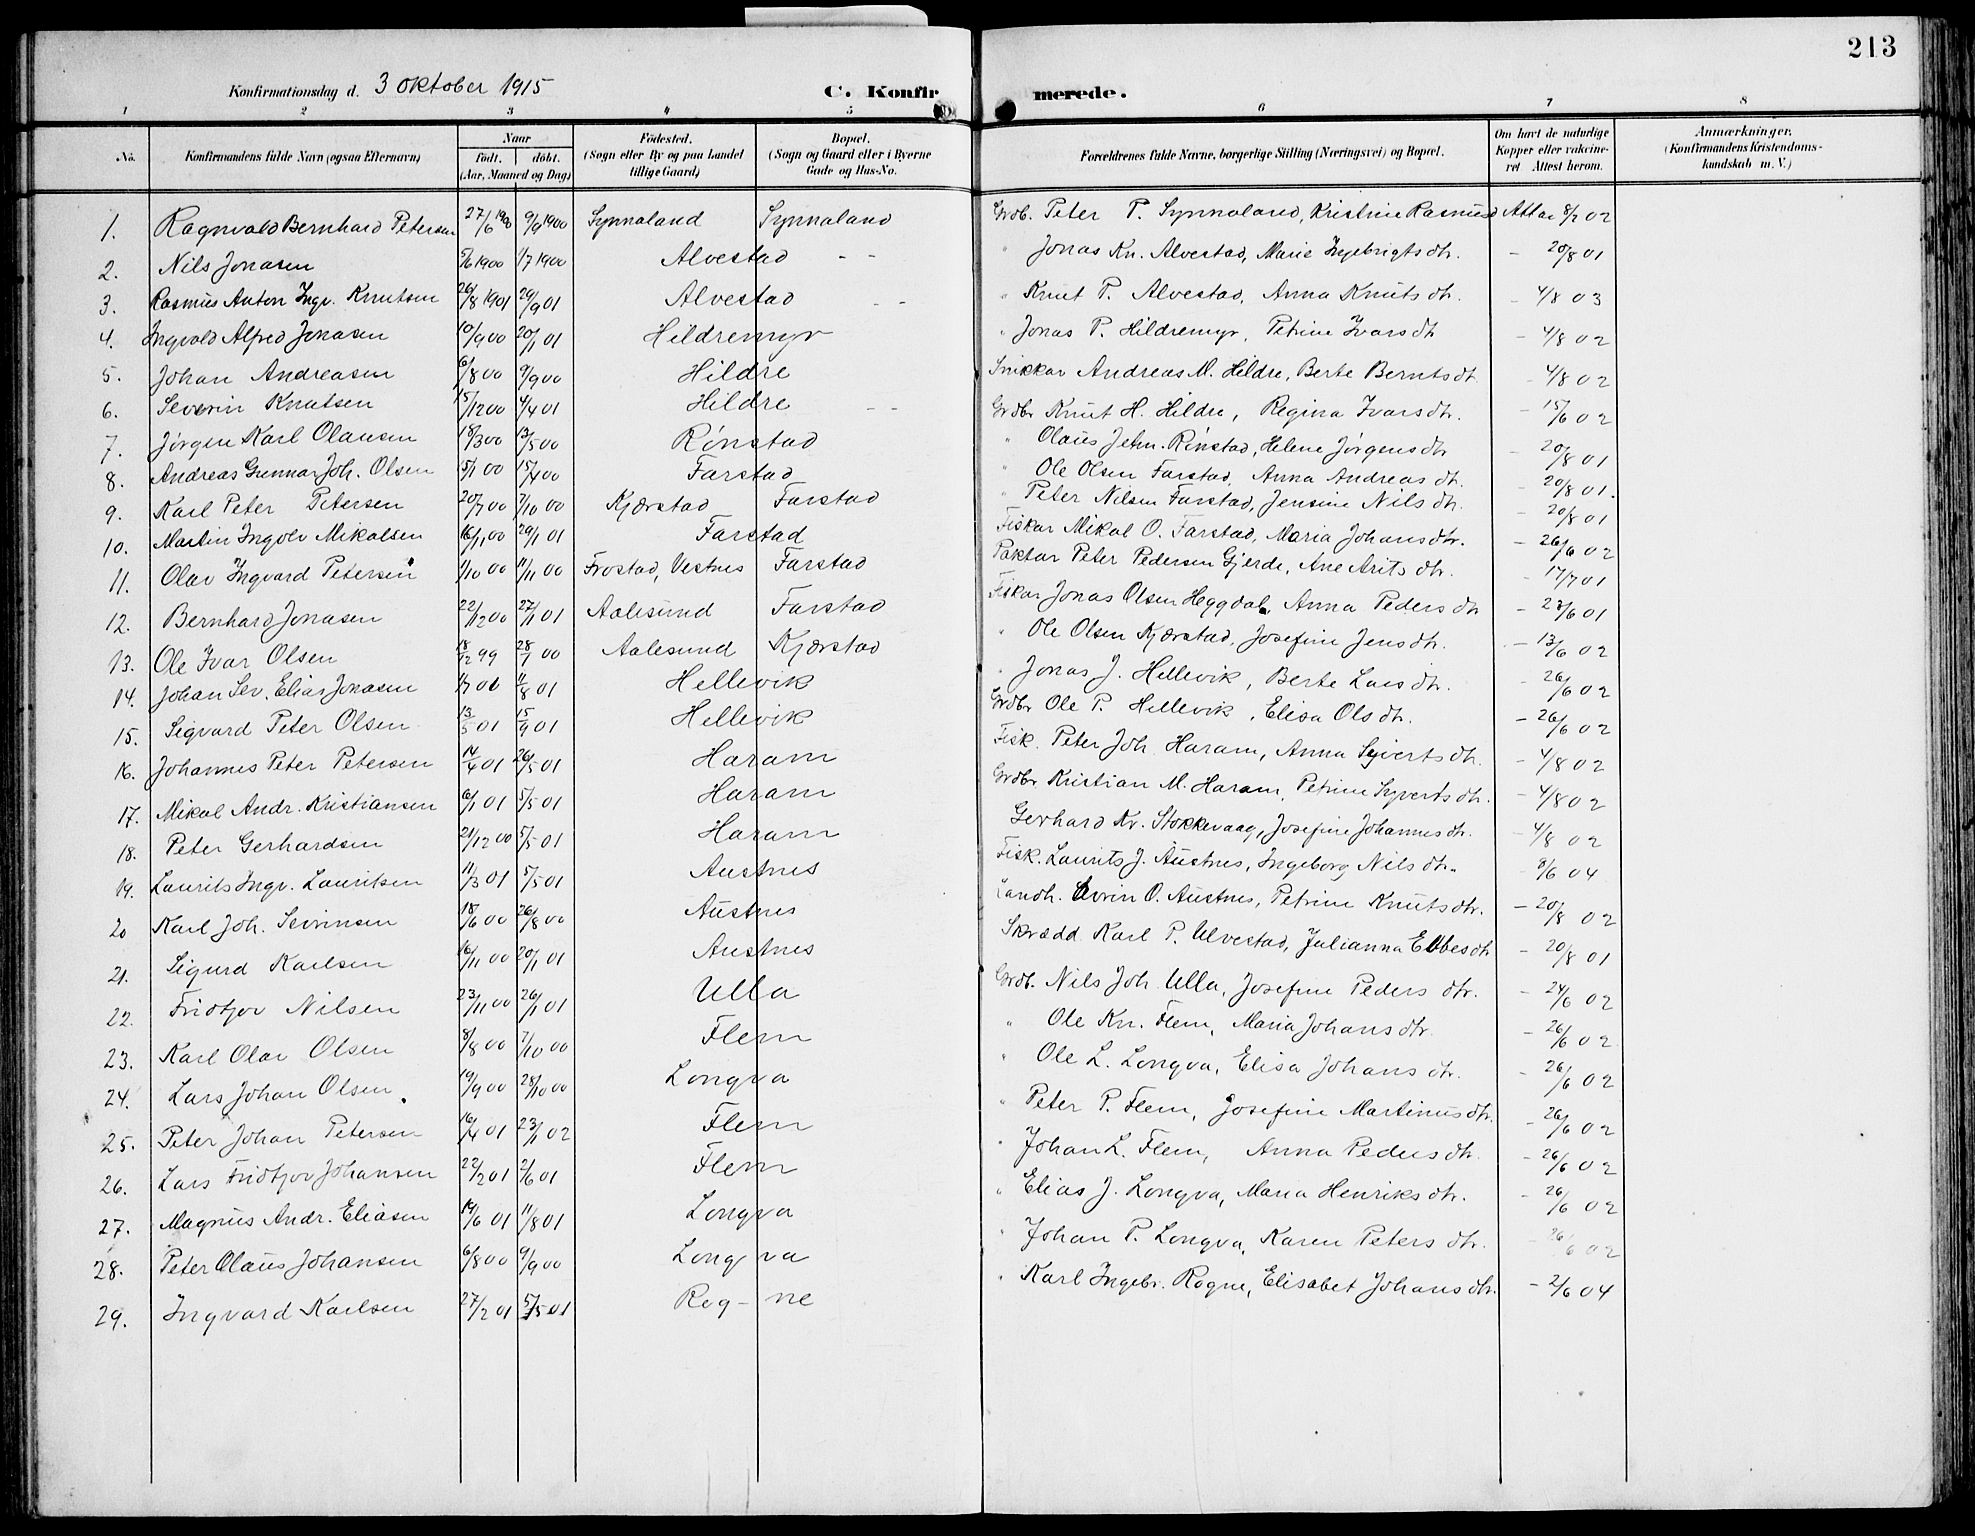 213
Konfirmationsdag d. 3 oktober 1915 C. Konfir merede.
1 2 3 4 5 6 7 8
No. Konfirmandens fulde Navn (ogsaa Efternavn) Naar født. døbt. (Aar, Maaned og Dag) Fødested. (Sogn eller By og paa Landet tillige Gaard) Bopæl. (Sogn og Gaard eller i Byerne Gade og Hus-No. Forældrenes fulde Navne, borgerlige Stilling (Næringsvei) og Bopæl. Om havt de naturlige Kopper eller vakcineret Attest herom. Anmærkninger. (Konfirmandens Kristendomskundskab m. V.)
1. Ragnvald Bernhard Petersen 27/6 1900 9/9 1900 Synnaland Synnaland Grdb. Peter P. Synnaland, Kristine Rasmusd Attar 8/7 02
2. Nils Jonasen 5/6 1900 1/7 1900 Alvestad - - " Jonas Kn. Alvestad, Marie Ingebrigtsdtr. - 20/8 01
3. Rasmus Anton Ingv. Knutsen 26/8 1901 29/9 01 Alvestad - - " Knut P. Alvestad, Anna Knutsdtr. - 4/8 03
4. Ingvald Alfred Jonasen 10/9 00 20/1 01 Hildremyr " Jonas P. Hildremyr, Petrine Ivarsdtr - 4/8 02
5. Johan Andreasen 6/8 00 9/9 00 Hildre Snikkar Andreas M. Hildre, Berte Berntsdtr. - 4/8 02
6. Severin Knutsen 15/12 00 4/4 01 Hildre - - Grdbr Knut H. Hildre, Regina Ivarsdtr. - 15/6 02
7. Jørgen Karl Olausen 18/3 00 13/5 00 Rønstad " Olaus Jehn. Rønstad, Helene Jørgensdtr - 20/8 01
8. Andreas Gunnar Joh. Olsen 5/1 00 15/4 00 Farstad " Ole Olsen Farstad, Anna Andreasdtr. - 20/8 01.
9. Karl Peter Petersen 20/7 00 7/10 00 Kjærstad Farstad " Peter Nilsen Farstad, Jensine Nilsdtr. - 20/8 01
10. Martin Ingolv Mikalsen 16/11 00 20/1 01 Farstad Fiskar Mikal O. Farstad, Maria Johansdtr. - 26/6 02
11. Olav Ingvard Petersen 1/10 00 11/11 00 Frostad, Vestnes Farstad Paktar Peter Pedersen Gjerde, Ane Aritsdtr. - 17/7 01
12. Bernhard Jonasen 22/12 00 27/1 01 Aalesund Farstad Fiskar Jonas Olsen Heggdal, Anna Pedersdtr - 27/6 01
13. Ole Ivar Olsen 18/12 99 28/1 00 Aalesund Kjærstad " Ole Olsen Kjærstad, Josefine Jensdtr. - 13/6 02
14. Johan Sev. Elias Jonasen 01 11/8 01 Hellevik " Jonas J. Hellevik, Berte Larsdtr. - 26/6 02
15. Sigvard Peter Olsen 13/5 01 15/9 01 Hellevik Grdbr Ole P. Hellevik, Elisa Olsdtr. - 26/6 02
16. Johannes Peter Petersen 14/4 01 26/5 01 Haram Fisk. Peter Joh. Haram, Anna Syvertsdtr. - 4/8 02
17. Mikal Andr. Kristiansen 6/1 01 5/5 01 Haram Grdbr Kristian M. Haram, Petrine Syvertsdtr. - 4/8 02
18. Peter Gerhardsen 21/12 00 5/5 01 Haram Gerhard Kr. Stokkevaag, Josefine Johannesdtr. - 4/8 02
19. Laurits Ingv. Lauritsen 11/3 01 5/5 01 Austnes Fisk. Laurits J. Austnes, Ingeborg Nilsdtr. - 8/6 04
20 Karl Joh. Sevrinsen 18/6 00 26/8 00 Austnes Landh. Sevrin O. Austnes, Petrine Knutsdtr. - 20/8 02
21. Sigurd Karlsen 16/11 00 20/1 01 Austnes Skrædd. Karl P. Ulvestad, Julianna Ebbesdtr - 20/8 01
22. Fridtjov Nilsen 23/11 00 26/1 01 Ulla Grdb. Nils Joh. Ulla, Josefine Pedersdtr. - 24/6 02
23. Karl Olav Olsen 8/8 00 7/10 00 Flem " Ole Kn. Flem, Maria Johansdtr. - 26/6 02
24. Lars Johan Olsen 19/9 00 28/10 00 Longva " Ole L. Longva, Elisa Johansdtr. - 26/6 02
25. Peter Johan Petersen 16/4 01 23/1 02 Flem " Peter P. Flem, Josefine Martinusdtr. - 26/6 02
26. Lars Fridtjov Johansen 22/2 01 2/6 01 Flem " Johan L. Flem, Anna Pedersdtr. - 26/6 02
27. Magnus Andr. Eliasen 19/6 01 11/8 01 Longva " Elias J. Longva, Maria Henriksdtr. - 26/6 02
28. Peter Olaus Johansen 6/8 00 9/9 00 Longva " Johan P. Longva, Karen Petersdtr. - 26/6 02
29. Ingvard Karlsen 27/2 01 5/5 01 Rog-ne " Karl Ingebr. Rogne, Elisabet Johansdtr. - 2/6 04